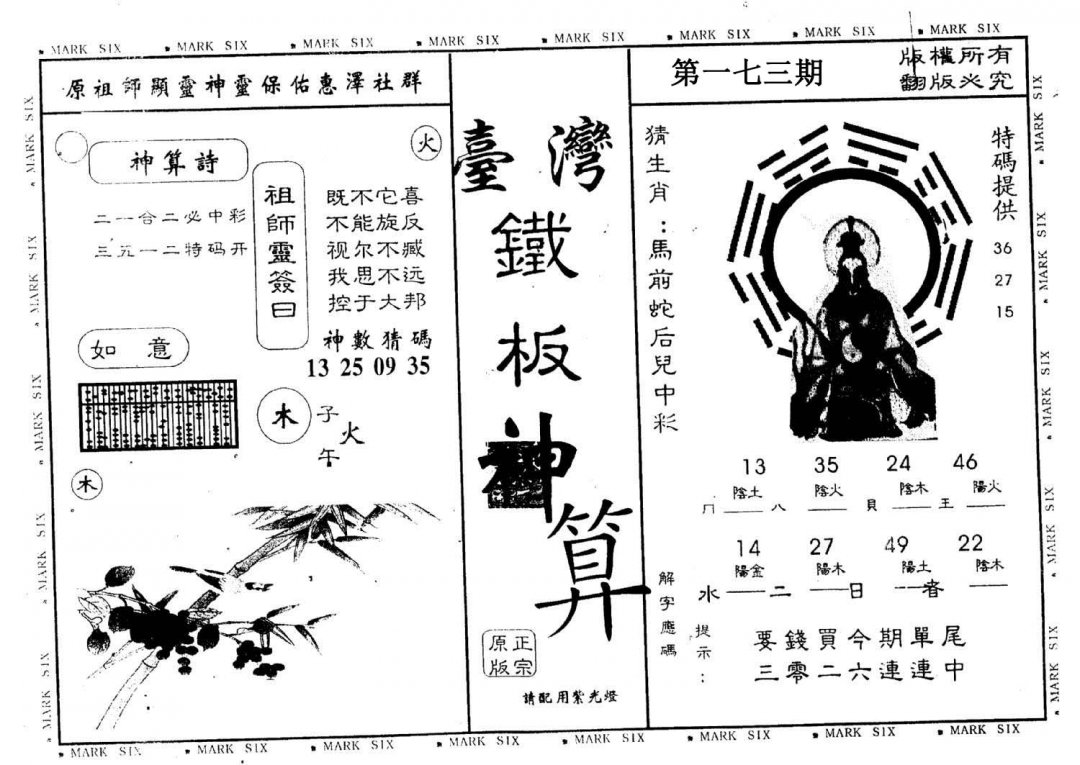 MARK SIX MARK SIX MARK SIX MARK SIX MARK SIX MARK SIX MARK SIX MARK SIX
原祖師顯靈神靈保佑惠澤社群
火
神算詩
二一合二必中彩
三五一二特码开
祖師靈簽曰
既不它喜
不能旋反
视尔不臧
我思不远
控于大邦
神數猜碼
13 25 09 35
如意
木
子
火
午
木
臺灣
鐵
板
神
算
正宗
原版
請配用紫光燈
第一七三期
版權所有
翻版必究
猜生肖:馬前蛇后兒中彩
特碼提供
36
27
15
13 35 24 46
陰土 陰火 陰木 陽火
冂 八 貝 王
14 27 49 22
陽金 陽木 陽土 陰木
水 二 日 者
解字應碼
提示:
要錢買今期單尾
三零二六連連中
MARK SIX MARK SIX MARK SIX MARK SIX MARK SIX MARK SIX MARK SIX MARK SIX
MARK SIX MARK SIX MARK SIX MARK SIX MARK SIX
MARK SIX MARK SIX MARK SIX MARK SIX MARK SIX